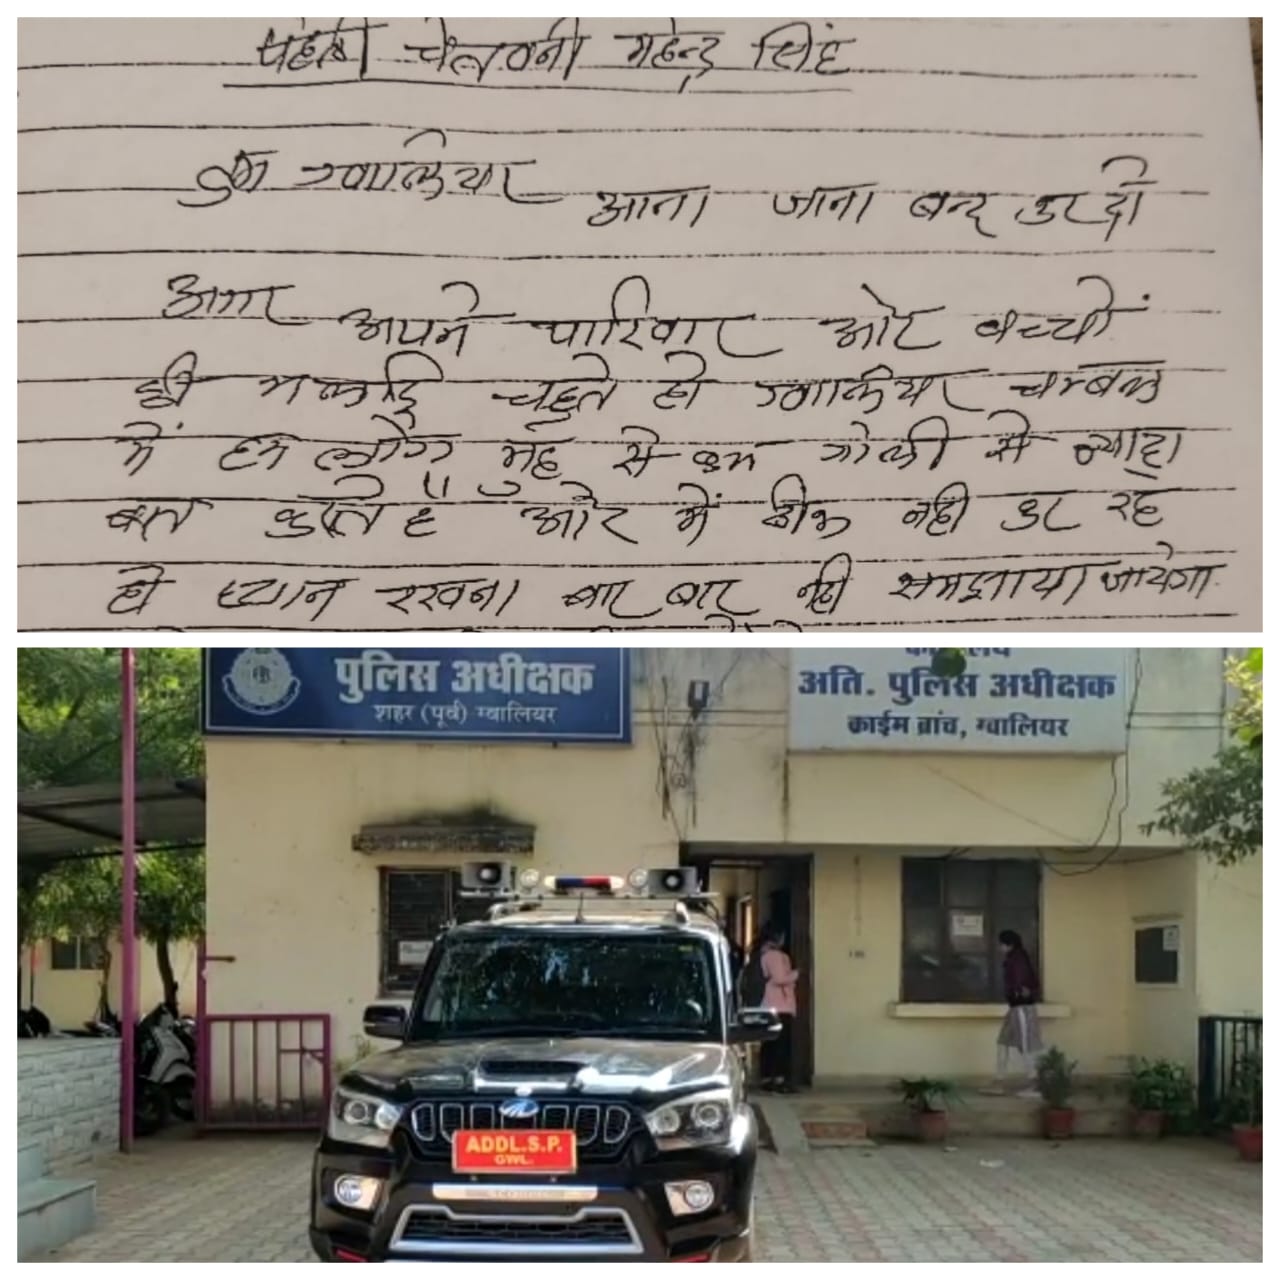 पहली चेतवनी महेन्द्र सिंह
तुम ग्वालियर आना जाना बन्द कर दो
अगर अपने पारिवार और बच्चों
की भलाई चहते हो ग्वालियर चम्बल
में हम लोग मुंह से कम गोली से ज्यादा
बात करते है और में ठीक नही कर रहे
हो ध्यान रखना बार बार नही समझाया जायेगा
पुलिस अधीक्षक
शहर (पूर्व) ग्वालियर
कार्यालय
अति. पुलिस अधीक्षक
क्राईम ब्रांच, ग्वालियर
ADDL.S.P.
GWL.